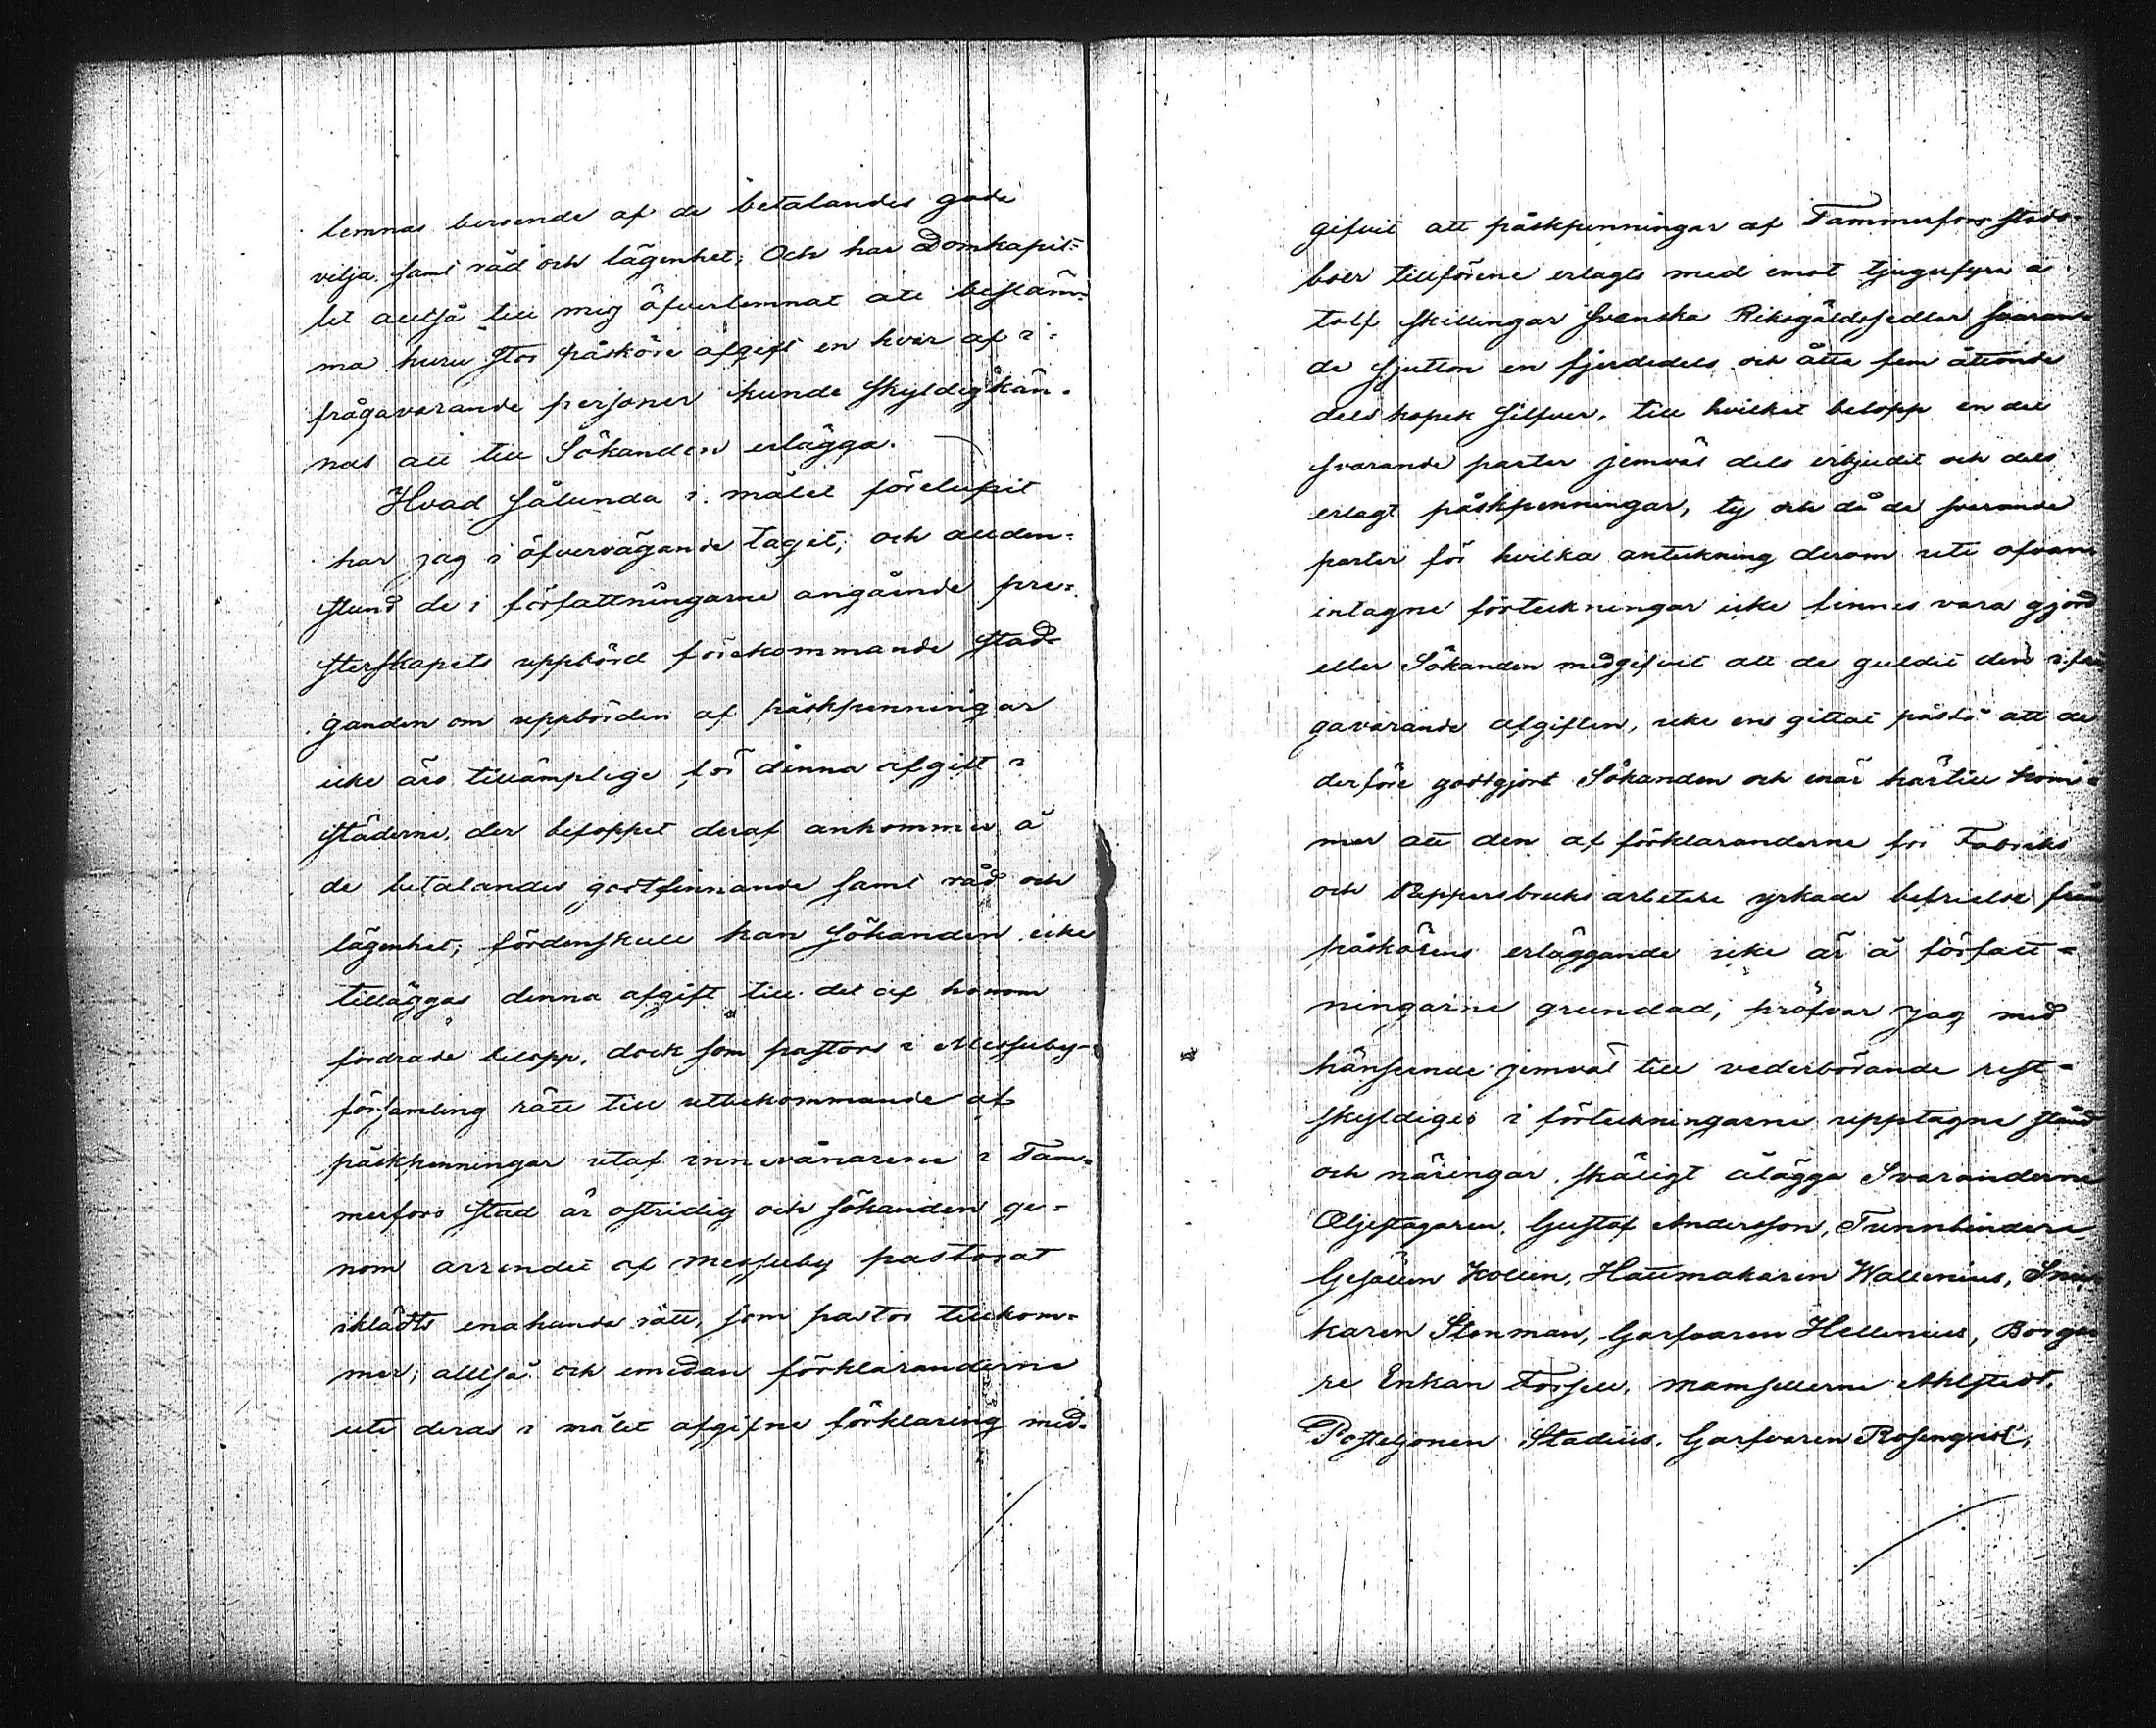 lemnas beroende af de betalandes goda
vilja samt råd och lägenhet; Och har Domkapit=
let alltså till mig öfverlemnat att bestäm=
ma huru stor påsköre afgift en hvar af i=
frågavarande personer kunde skyldig kän=
nas att till Sökanden erlägga.
Hvad sålunda i målet förelupit
har jag i öfvervägande tagit; och allden=
stund de i författningarne angående pre=
sterskapets uppbörd förekommande stad=
ganden om uppbörden af påskpenningar
icke äro tillämplige för denna afgift i
städerne, der beloppet deraf ankommer å
de betalandes godtfinnande samt råd och
lägenhet; fördenskull kan Sökanden icke
tilläggas denna afgift till det af honom
fordrade belopp, dock som pastors i Messuby=
församling rätt till utbekommande af
påskpenningar utaf innevånarene i Tam=
merfors stad är ostridig och Sökanden ge=
nom arrendet af Messuby pastorat
iklädts enahanda rätt, som pastor tillkom=
mer; alltså och emedan förklaranderne
uti deras i målet afgifne förklaring med=
gifvit att påskpenningar af Tammerfors stads=
boer tillförene erlagts med emot tjugufyra a
tolf skillingar Svenska Riksgäldssedlar svaran
de sjutton en fjerdedels och åtta fem åttonde
dels kopek silfver, till hvilket belopp en del
svarande parter jemväl dels erbjudit och dels
erlagt påskpenningar, ty och då de svarande
parter för hvilka anteckning derom uti ofvan
intagne förteckningar icke finnes vara gjord
eller Sökanden medgifvit att de guldit den i frå
gavarande afgiften, icke ens gittat påstå att de
derföre godtgjort Sökanden och enär härtill kom=
mer att den af förklaranderne för Fabriks
och Pappersbruks arbetare yrkade befrielse från
påskörens erläggande icke är å författ=
ningarne grundad; pröfvar jag med
hänseende jemväl till vederbörande rest=
skyldiges i förteckningarne upptagne stånd
och näringar, skäligt ålägga Svaranderne
Oljeslagaren Gustaf Andersson, Tunnbindare
Gesällen Kollin, Hattmakaren Wallenius,
karen Stenman, Garfvaren Hellenius, Borga
re Enkan Forsell, Mamsellerne Ahlstedt,
Postiljonen Stadius, Garfvaren Rosenqvist,